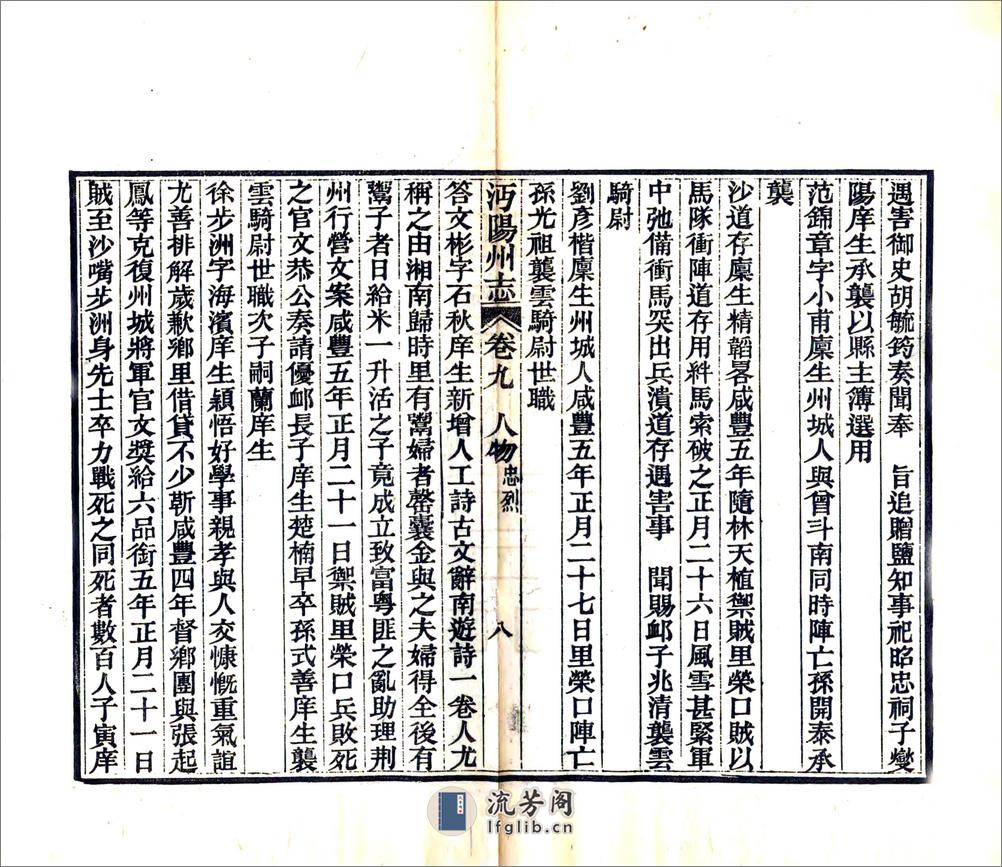 遇害御史胡毓筠奏聞奉　旨追贈鹽知事祀昭忠祠子燮
陽庠生承襲以縣主簿選用
范錦章字小甫廩生州城人與曾斗南同時陣亡孫開泰承
襲
沙道存廩生精韜畧咸豐五年隨林天植禦賊里榮口賊以
馬隊衝陣道存用絆馬索破之正月二十六日風雪甚緊軍
中弛備衝馬突出兵潰道存遇害事　聞賜衈子兆清襲雲
騎尉
劉彥楷廩生州城人咸豐五年正月二十七日里榮口陣亡
孫光祖襲雲騎尉世職
沔陽州志　卷九　人物忠烈　八
答文彬字石秋庠生新增人工詩古文辭南遊詩一卷人尤
稱之由湘南歸時里有鬻婦者罄囊金與之夫婦得全後有
鬻子者日給米一升活之子竟成立致富粵匪之亂助理荆
州行營文案咸豐五年正月二十一日禦賊里榮口兵敗死
之官文恭公奏請優衈長子庠生楚楠早卒孫式善庠生襲
雲騎尉世職次子嗣蘭庠生
徐步洲字海濱庠生穎悟好學事親孝與人交慷慨重氣誼
尤善排解歲歉鄉里借貸不少靳咸豐四年督鄉團與張起
鳳等克復州城將軍官文獎給六品銜五年正月二十一日
賊至沙嘴步洲身先士卒力戰死之同死者數百人子寅庠
流芳阁
lfglib.cn